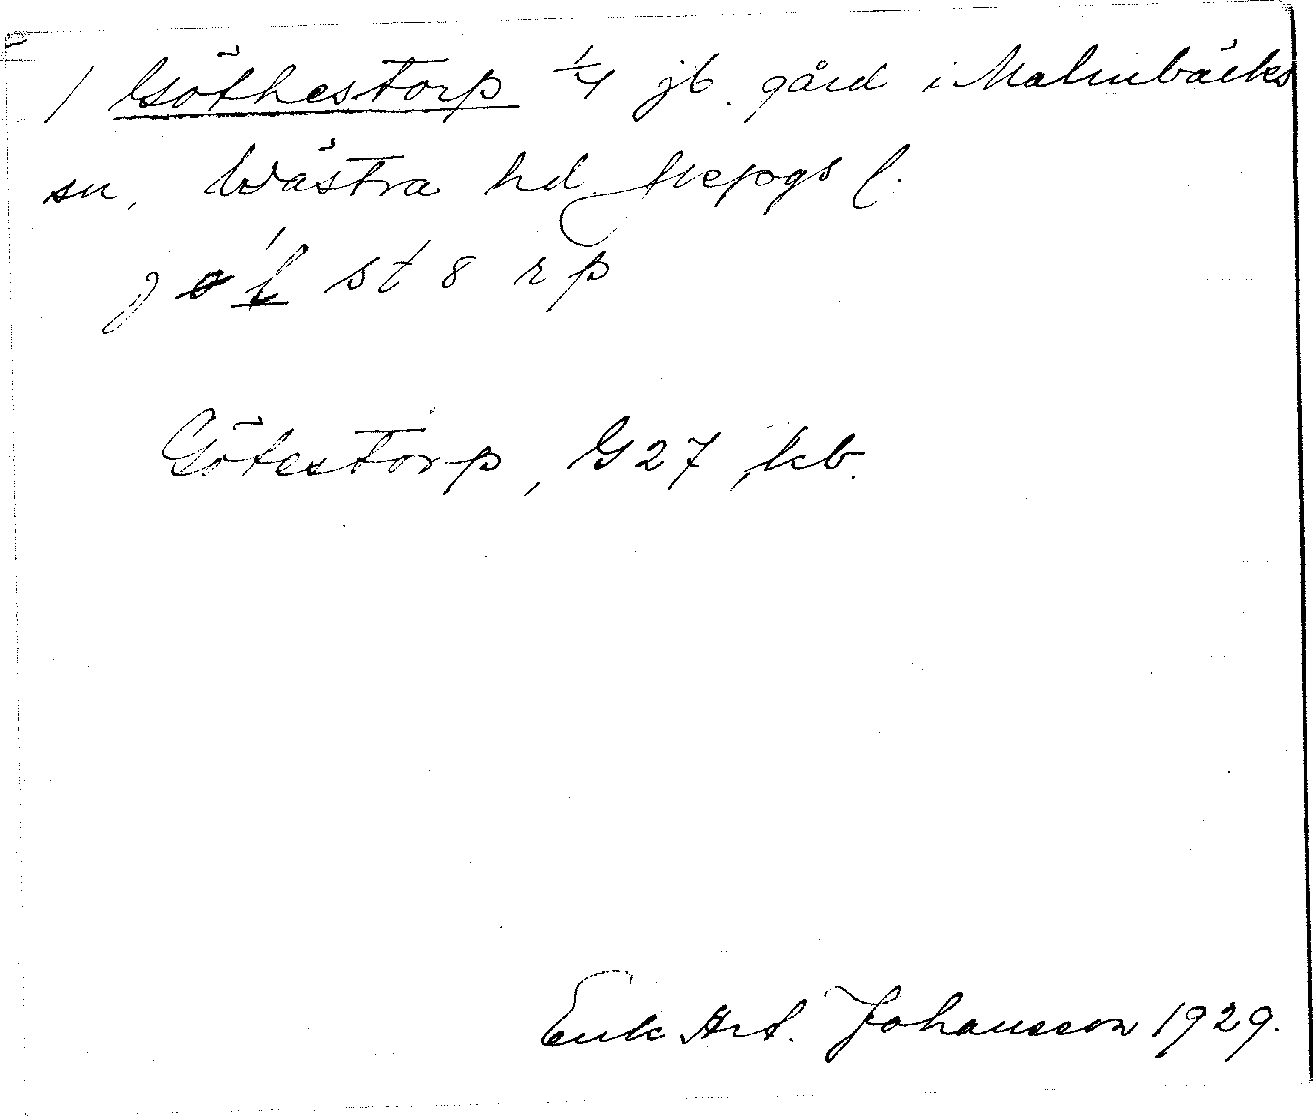 / Göthestorp 1/4 jb. gård i Malmbäcks
sn, Västra hd
st s r p
Götestorp, G 27, kb.
Erik Art. Johansson 1929.